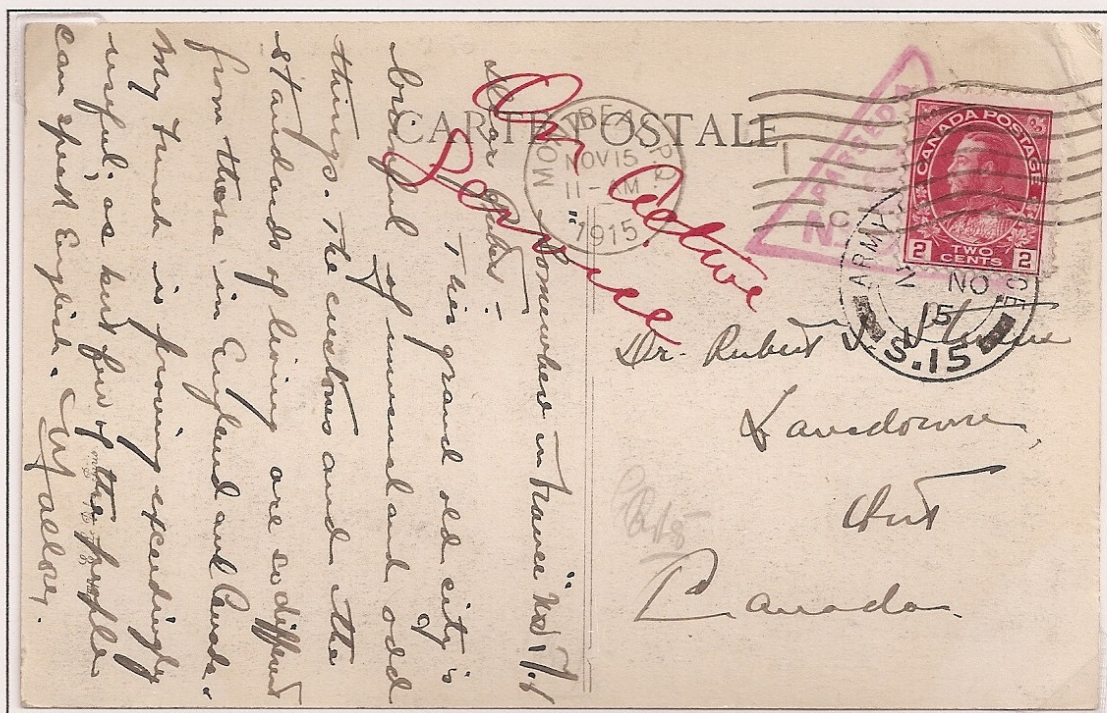 CARTE POSTALE
On Active
Service
MONTREAL P.Q.
NOV 15
11-AM
1915
PASSED
CANADA POSTAGE
2 TWO CENTS 2
ARMY
NO
15
S.15
Dr. Robert
Lansdowne
Ont
Canada
"Somewhere in France" Nov 1st
Dear Robert:-
This grand old city is
brimful of unusual and odd
things. The customs and the
standards of living are so different
from those in England and Canada.
My French is proving exceedingly
useful, as but few of the people
can speak English.